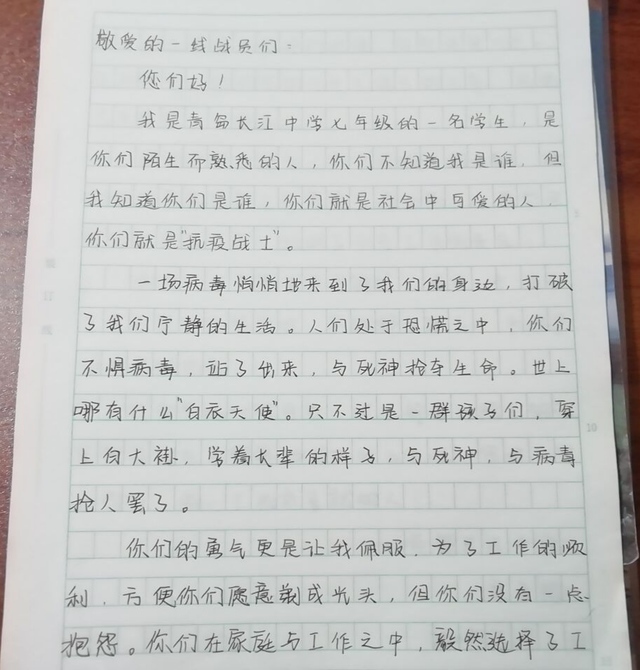 敬爱的一线战员们：
您们好！
我是青岛长江中学七年级的一名学生，是
你们陌生而熟悉的人，你们不知道我是谁，但
我知道你们是谁，你们就是社会中可爱的人，
你们就是"抗疫战士"。
一场病毒悄悄地来到了我们的身边，打破
了我们宁静的生活。人们处于恐慌之中，你们
不惧病毒，站了出来，与死神抢夺生命。世上
哪有什么"白衣天使"。只不过是一群孩子们，穿
上白大褂，学着长辈的样子，与死神，与病毒
抢人罢了。
你们的勇气更是让我佩服，为了工作的顺
利，方便你们愿意剃成光头，但你们没有一点
抱怨。你们在家庭与工作之中，毅然选择了工
10